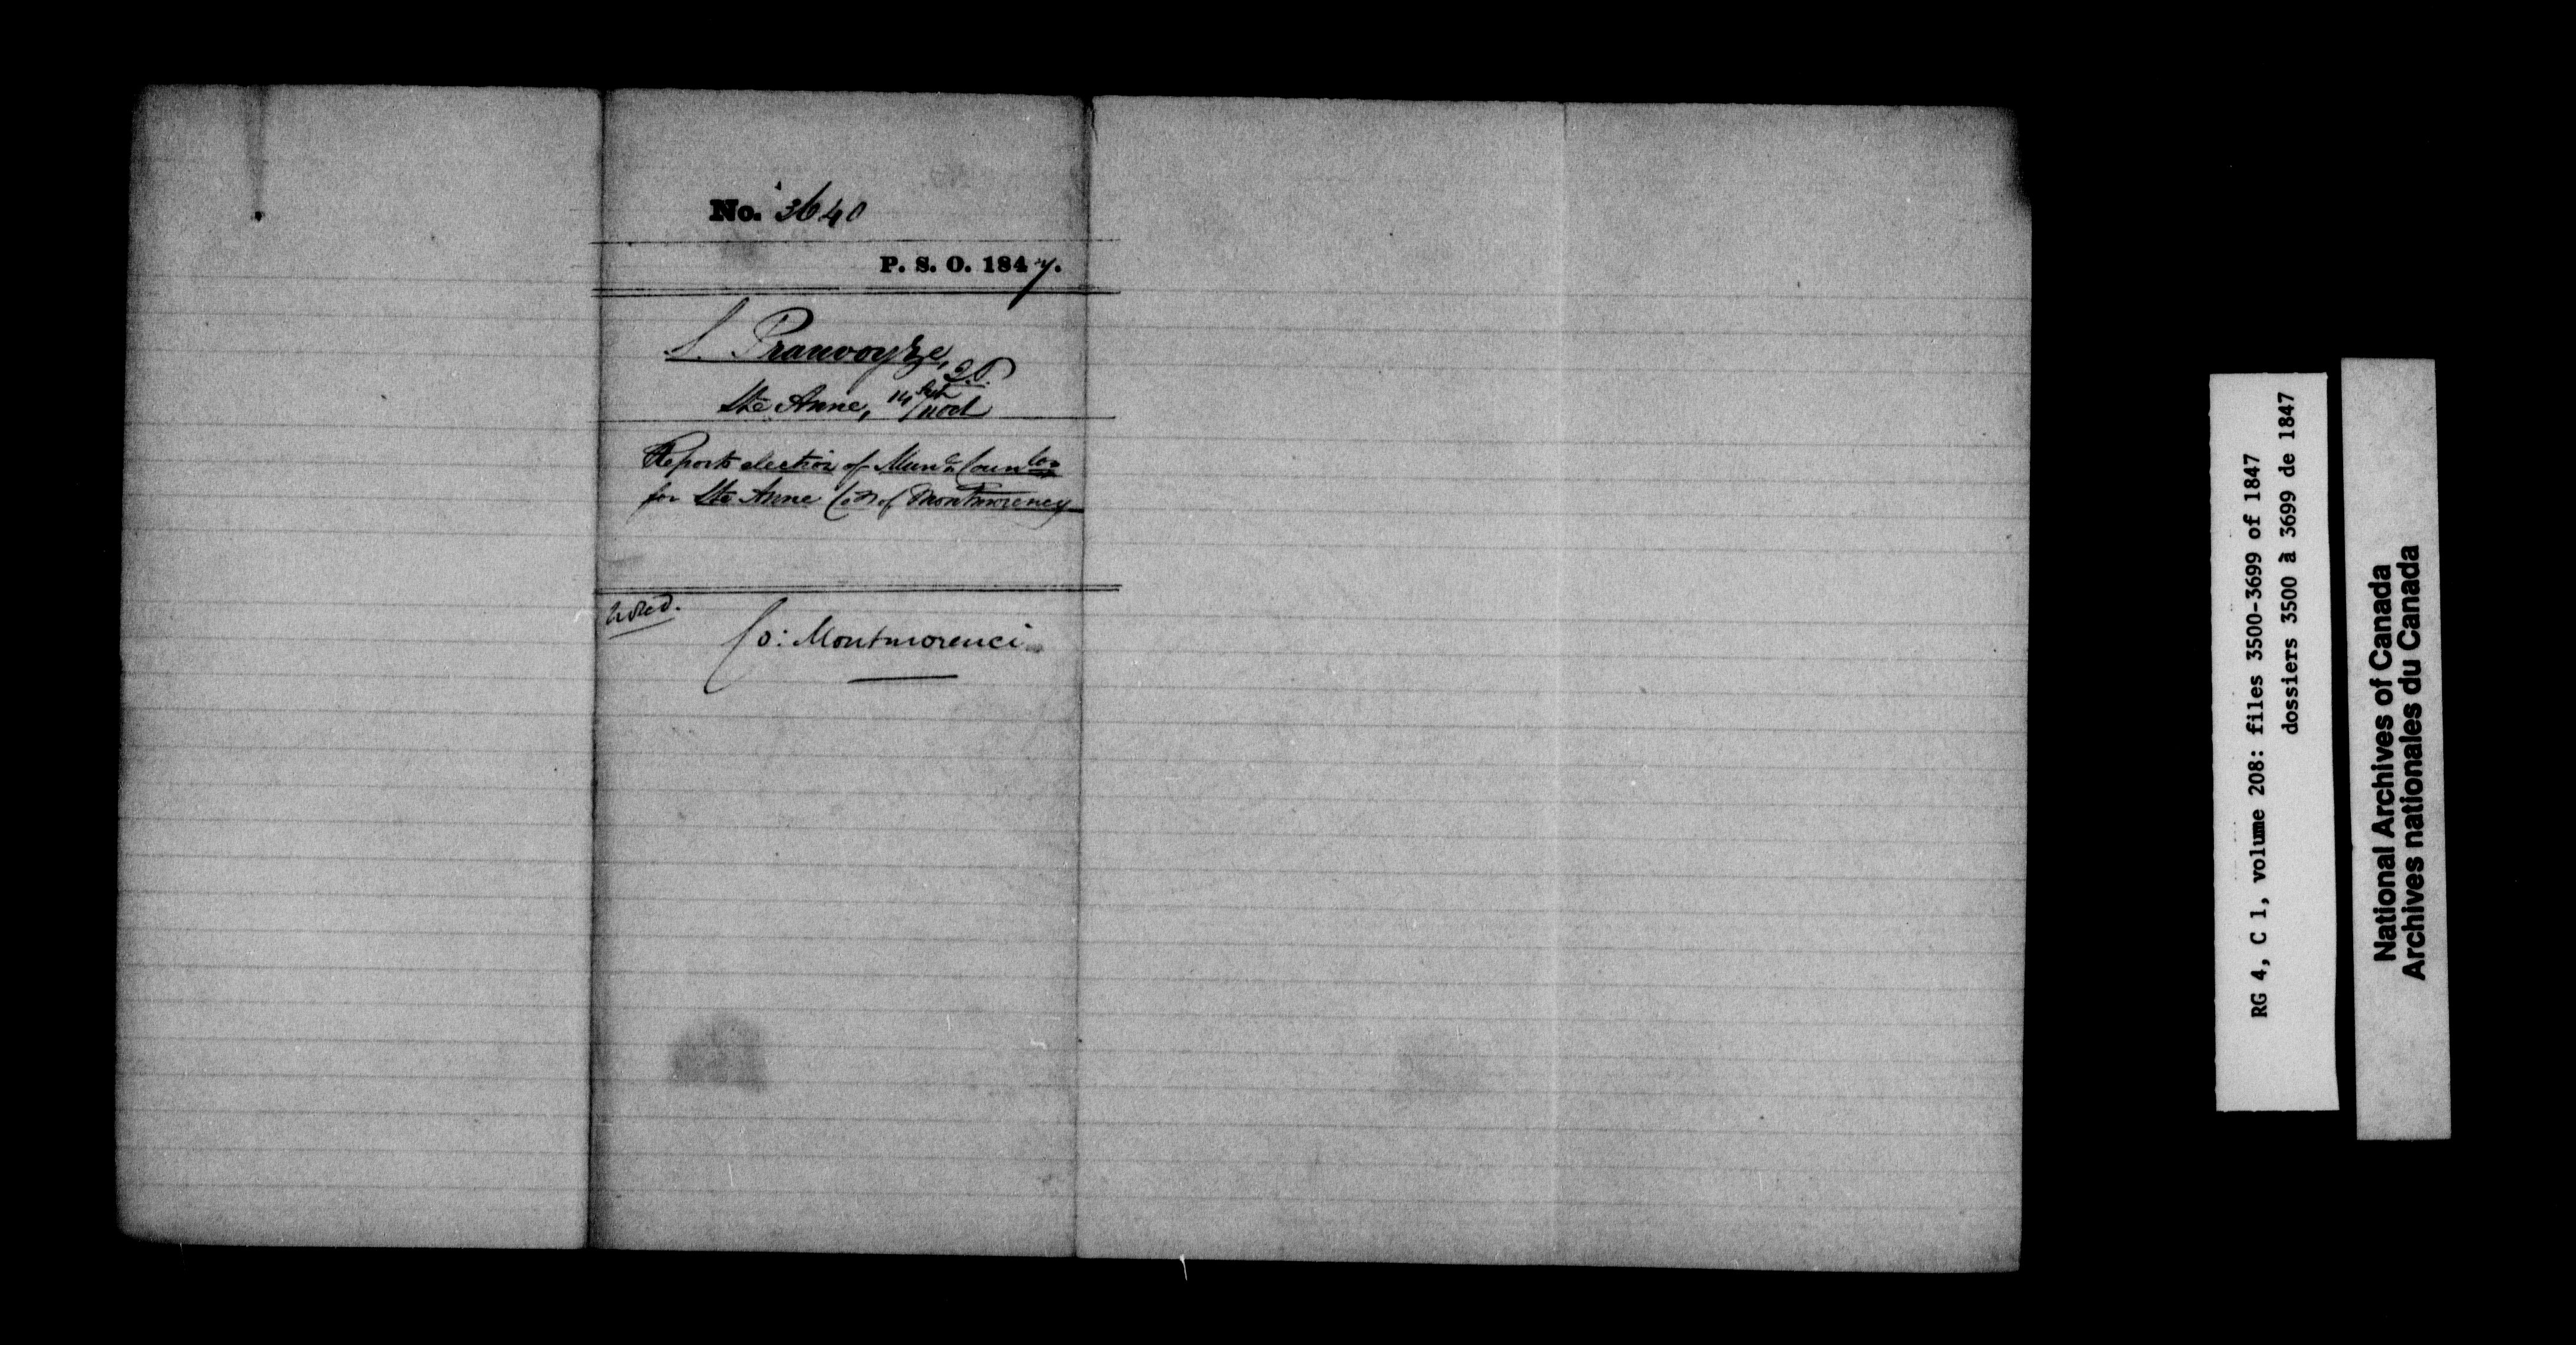 No. 3640
P. S. O. 1847.
Ste Anne, 14 Sept
Reports election of Mun:
for Ste Anne Co of Montmorency
Noted.
Co: Montmorenci
RG 4, C 1, volume 208: files 3500-3699 of 1847
dossiers 3500 à 3699 de 1847
National Archives of Canada
Archives nationales du Canada